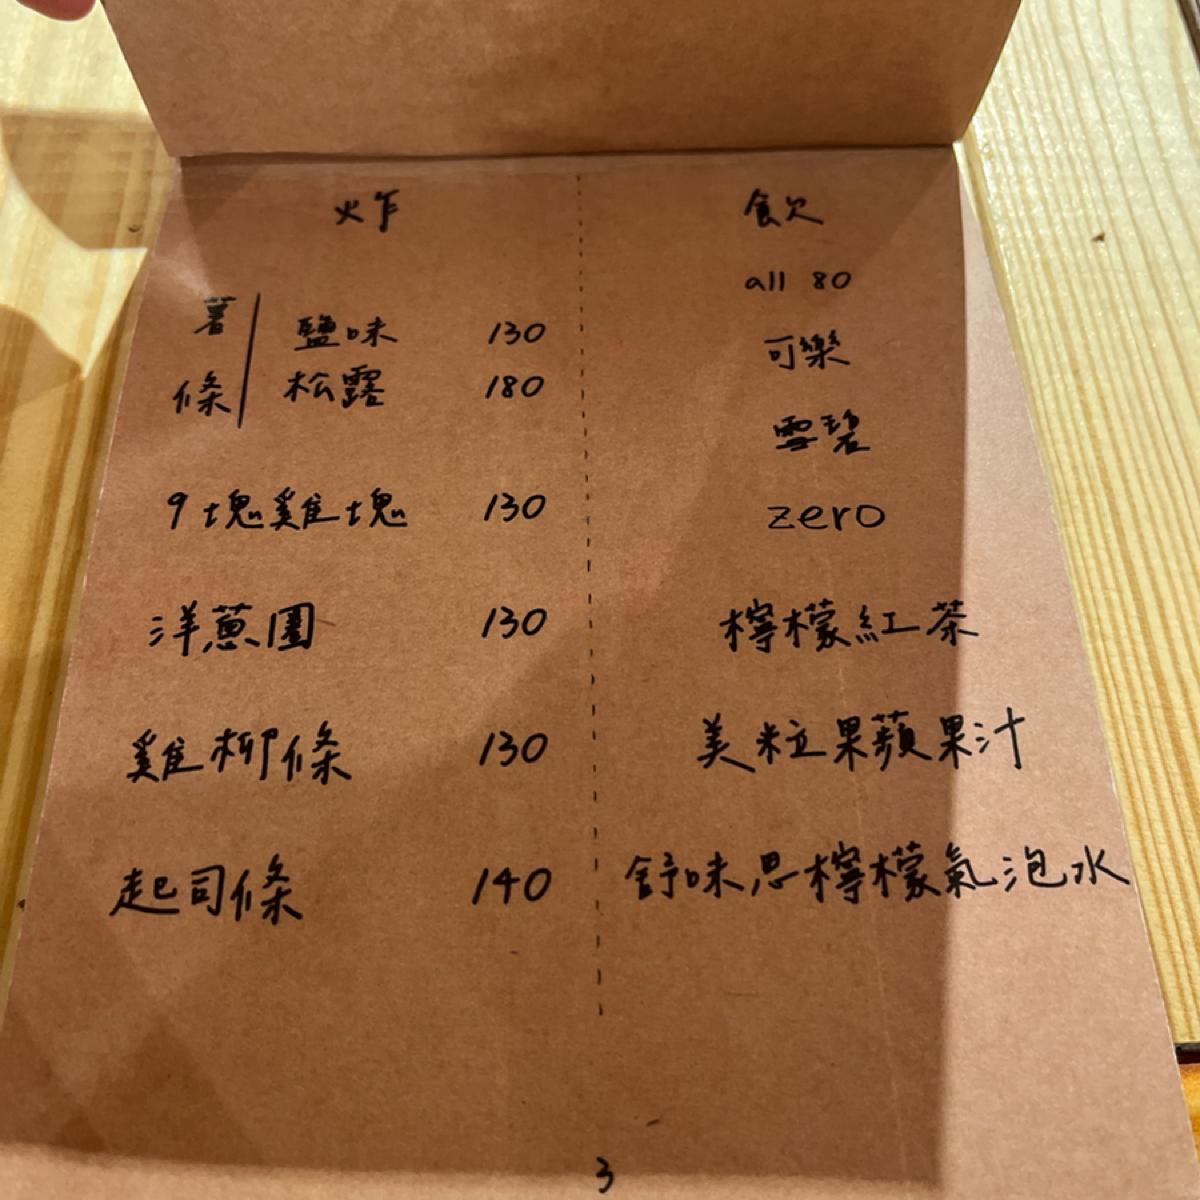 炸
薯條
鹽味 130
松露 180
9塊雞塊 130
洋蔥圈 130
雞柳條 130
起司條 140
飲
all 80
可樂
雪碧
zero
檸檬紅茶
美粒果蘋果汁
舒味思檸檬氣泡水
3